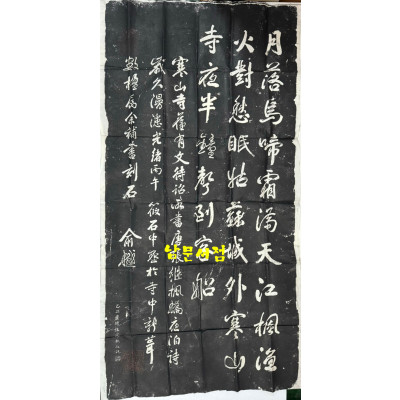 月落烏啼霜滿天江楓漁
火對愁眠姑蘇城外寒山
寺夜半鐘聲到客船
寒山寺舊有文待詔所書唐張繼楓橋夜泊詩
歲久漫漶光緒丙午筱石中丞於寺中新葺
數楹屬余補書刻石
俞樾
남문서점